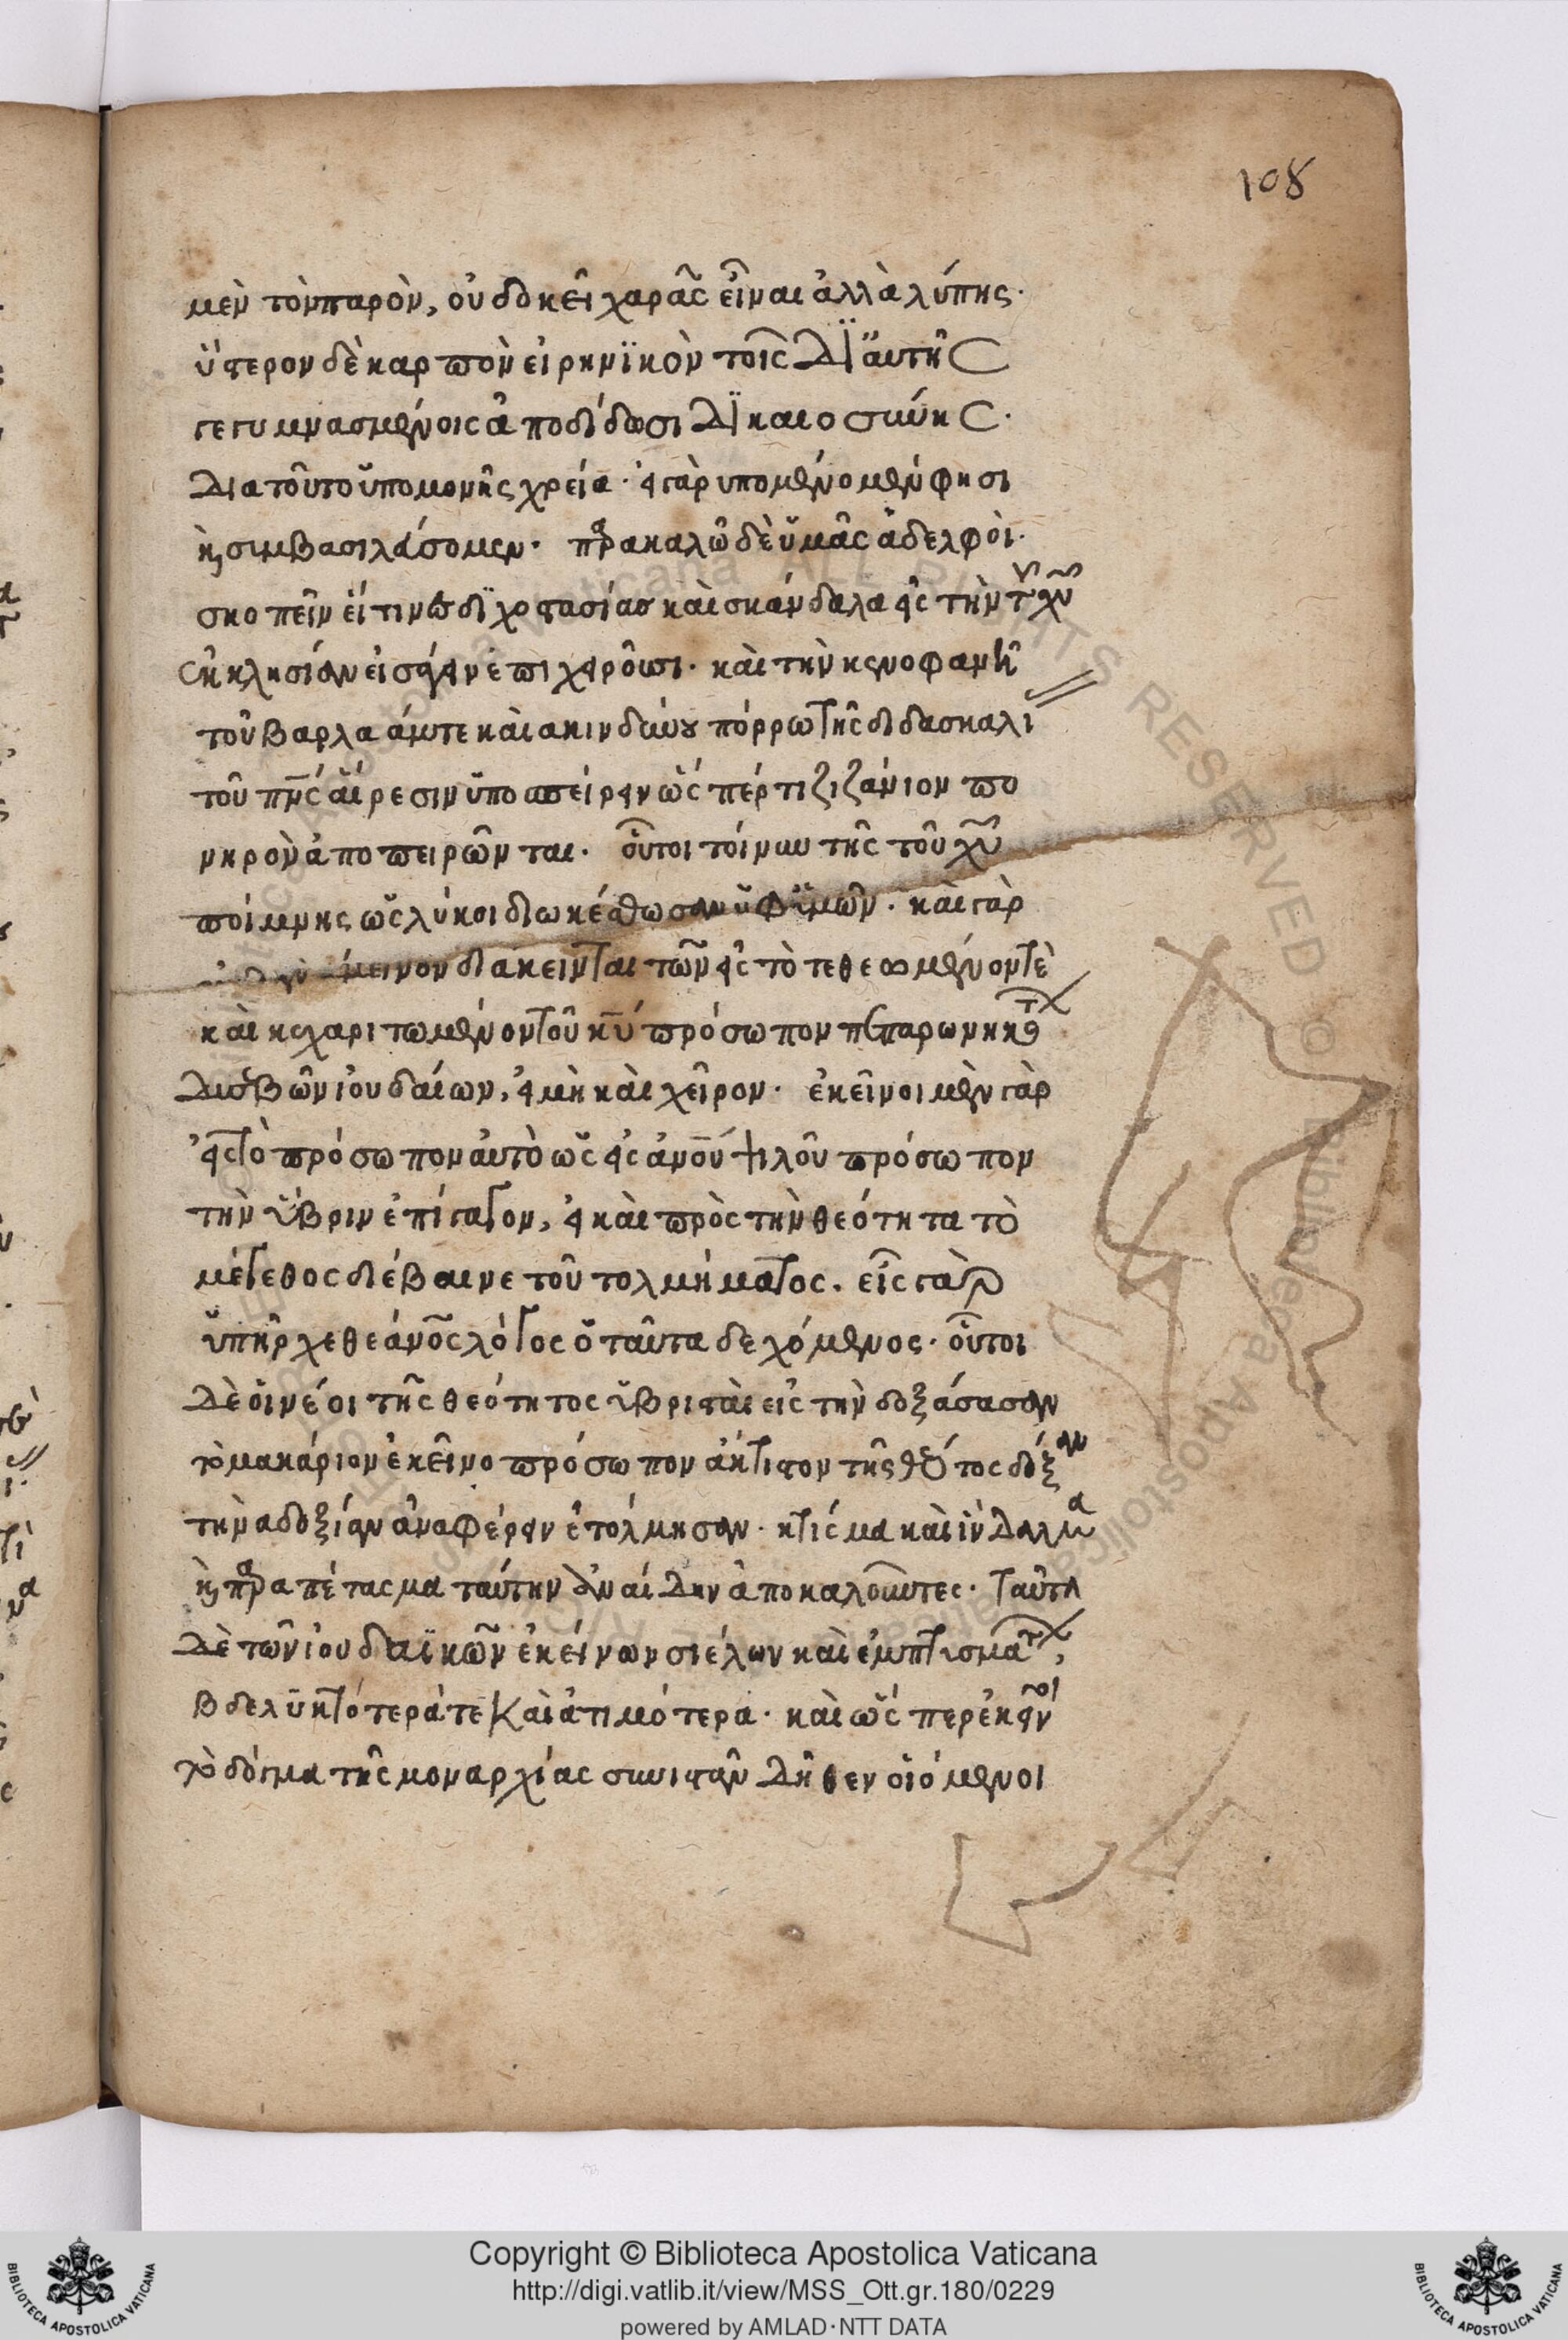 108
μὲν τὸ παρὸν, οὐ δοκεῖ χαρᾶς εἶναι ἀλλὰ λύπης·
ὕστερον δὲ καρπὸν εἰρηνϊκὸν τοῖς δϊ ἀυτῆς
γεγυμνασμένοις ἀποδίδωσι δϊκαιοσύνης·
Διατοῦτο ὑπομονῆς χρεία· εἰ γὰρ υπομένομεν φησι
κ συμβασιλεύσομεν· παρακαλῶ δὲ ὑμᾶς ἀδελφοὶ·
σκοπεῖν εἴ τινες διχοστασίας καὶ σκάνδαλα εἰς τὴν τοῦ χυ
ἐκκλησίαν εἰσάγειν ἐπιχειροῦσι· καὶ τὴν κενοφανῆ
τοῦ Βαρλαάμ τε καὶ ακινδύνου πόρρω τῆς διδασκαλί
τοῦ πνς αἵρεσιν ὑποσπείρειν ὥσπέρ τι ζιζάνιον πο
νηρὸν ἀποπειρῶνται· οὗτοι τοίνυν τῆς τοῦ χυ
ποίμνης ὡς λύκοι διωκέσθωσαν ὑφ ϊμῶν· καὶ γὰρ
ἄμεινον διάκεινται τῶν εἰς τὸ τεθεωμένον τὲ
καὶ κεχαριτωμένον τοῦ κυ πρόσωπον πεπαρωνηκότων
δυσσεβῶν ϊουδαίων, εἰ μὴ καὶ χεῖρον· ἐκεῖνοι μὲν γὰρ
εἰς τὸ πρόσωπον ἀυτὸ ὡς εἰς ἀνου ψιλοῦ πρόσωπον
τὴν ὕβριν ἐπίγαγον, εἰ καὶ πρὸς τὴν θεότητα τὸ
μέγεθος διέβαινε τοῦ τολμήματος· εἷς γὰρ
ὑπῆρχε θεάνος λόγος ὁ ταῦτα δεχόμενος· οὗτοι
Δὲ οἱ νέοι τῆς θεότητος ὑβρισταὶ εἰς τὴν δοξάσασαν
τὸ μακάριον ἐκεῖνο πρόσωπον ἄκτιστον τῆς θεότητος δόξαν
τὴν αδοξίαν ἀναφέρειν ἐτόλμησαν· κτίσμα καὶ ἰνδαλμα
κ παραπέτασμα ταύτην ἀναίδην ἀποκαλοῦντες· ταῦτα
Δὲ τῶν ϊουδαϊκῶν ἐκείνων σιέλων καὶ ἐμπτισμάτων,
βδελυκτότερά τε καὶ ἀτιμότερα· καὶ ὥσπερ ἐκεῖνοι
τὸ δόγμα τῆς μοναρχίας συνιστᾶν δῆθεν οἰόμενοι
Copyright © Biblioteca Apostolica Vaticana
http://digi.vatlib.it/view/MSS_Ott.gr.180/0229
powered by AMLAD·NTT DATA